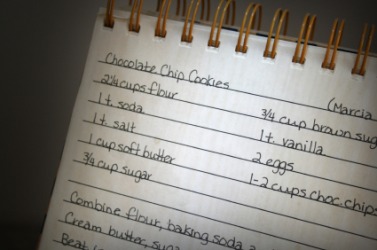 Chocolate Chip Cookies (Marcia
2¼ cups flour
1 t. soda
1 t. salt
1 cup soft butter
¾ cup sugar
¾ cup brown sug
1 t. vanilla
2 eggs
1-2 cups choc. chips
Combine flour, baking soda
Cream butter, suga